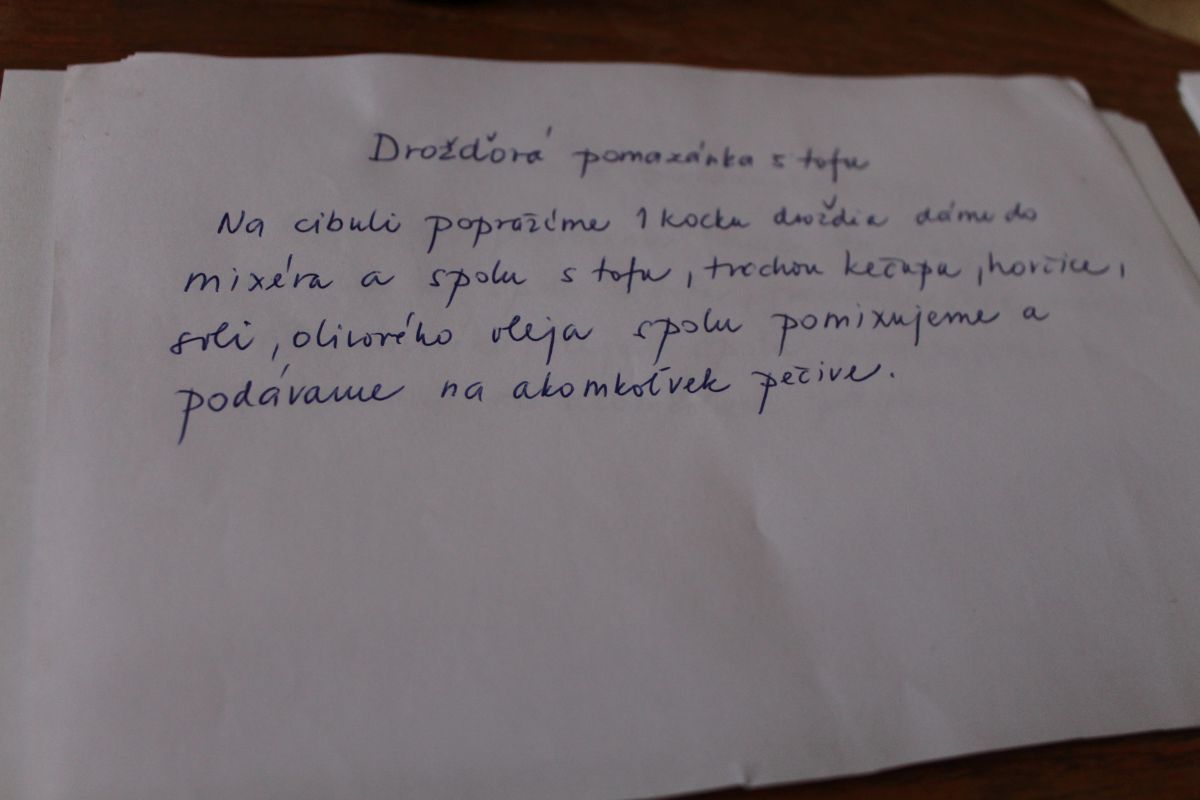 Drožďová pomazánka s tofu
Na cibuli popražíme 1 kocku droždia dáme do
mixéra a spolu s tofu, trochou kečupu, horčice,
soli, olivového oleja spolu pomixujeme a
podávame na akomkoľvek pečive.